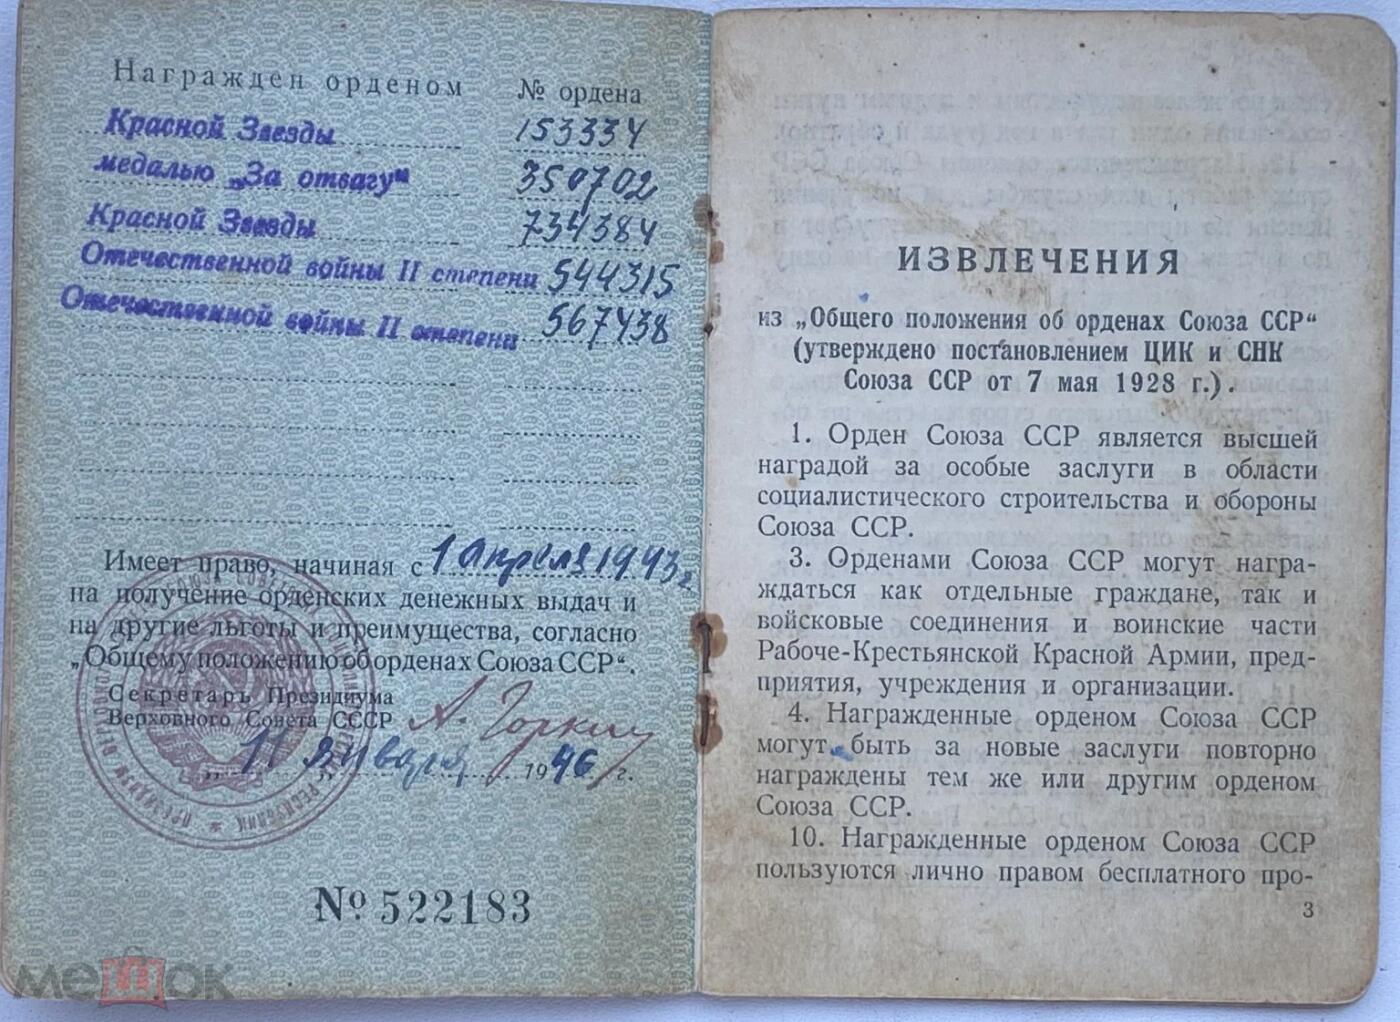 Награжден орденом № ордена
Красной Звезды 153334
медалью „За отвагу“ 350702
Красной Звезды 734384
Отечественной войны II степени 544315
Отечественной войны II степени 567438
Имеет право, начиная с 1 апреля 1943 г.
на получение орденских денежных выдач и
на другие льготы и преимущества, согласно
„Общему положению об орденах Союза ССР“.
Секретарь Президиума
Верховного Совета СССР А. Горкин
„11 января 1946 г.
№ 522183
ИЗВЛЕЧЕНИЯ
из „Общего положения об орденах Союза ССР“
(утверждено постановлением ЦИК и СНК
Союза ССР от 7 мая 1928 г.).
1. Орден Союза ССР является высшей
наградой за особые заслуги в области
социалистического строительства и обороны
Союза ССР.
3. Орденами Союза ССР могут награ-
ждаться как отдельные граждане, так и
войсковые соединения и воинские части
Рабоче-Крестьянской Красной Армии, пред-
приятия, учреждения и организации.
4. Награжденные орденом Союза ССР
могут быть за новые заслуги повторно
награждены тем же или другим орденом
Союза ССР.
10. Награжденные орденом Союза ССР
пользуются лично правом бесплатного про-
3
меток